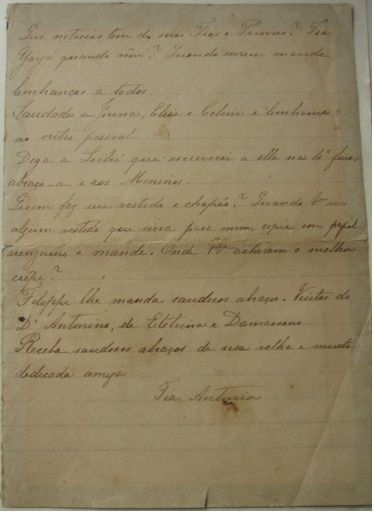 Que noticias tem de suas Tias e Primos? Tia
Yayá quando vem? Quando sorem mande
lembranças a todos.
Saudades a Jonna, Elisa e Celina e lembranças
ao outro pessoal
Diga a Lulú que escreverei a ella na 4ª feira,
abraço-a e aos Meninos.
Quem fez seu vestido e chapéo? Quando V. vir
algum vestido que sirva para mim, copie em papel
e mande. Onde VV. acharam o melhor
crepe?
Filippe lhe manda saudosos abraços. Visitas de
D. Antonino, de Etelvina e Damasceno.
Receba saudosos abraços de sua velha e muito
dedicada amiga
Tia Antonia